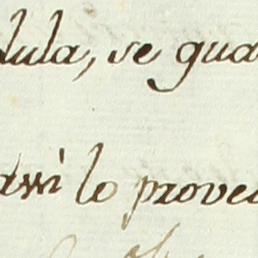 dula, se gua
assi lo provei